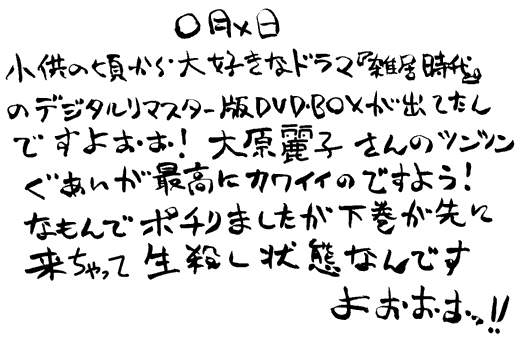 〇月×日
小供の頃から大好きなドラマ『雑居時代』
のデジタルリマスター版DVD・BOXが出てたん
ですよお・お！大原麗子さんのツンツン
ぐあいが最高にカワイイのですよう！
なもんでポチりましたが下巻が先に
来ちゃって生殺し状態なんです
よおおおッ!!